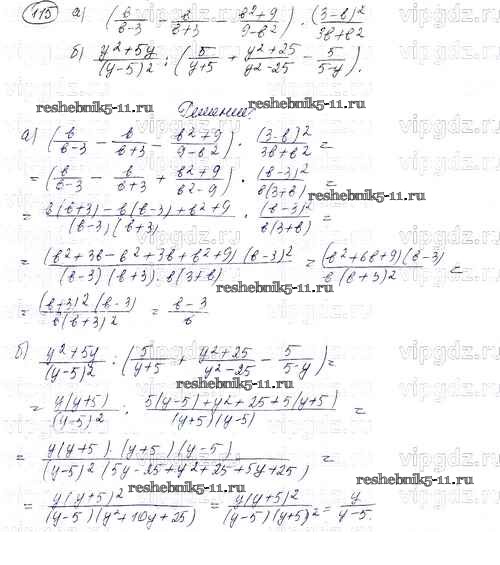 115 а) (в/(в-3) - в/(в+3) - (в²+9)/(9-в²)) · (3-в)²/(3в+в²)
б) (y²+5y)/(y-5)² : (5/(y+5) + (y²+25)/(y²-25) - 5/(5-y)).
reshebnik5-11.ru reshebnik5-11.ru
Решение:
а) (в/(в-3) - в/(в+3) - (в²+9)/(9-в²)) · (3-в)²/(3в+в²) =
= (в/(в-3) - в/(в+3) + (в²+9)/(в²-9)) · (в-3)²/(в(3+в)) =
reshebnik5-11.ru
= (в(в+3)-в(в-3)+в²+9)/((в-3)(в+3)) · (в-3)²/(в(3+в)) =
= (в²+3в-в²+3в+в²+9)(в-3)²/((в-3)(в+3)·в(3+в)) = (в²+6в+9)(в-3)/(в(в+3)²) =
reshebnik5-11.ru
= (в+3)²(в-3)/(в(в+3)²) = (в-3)/в
б) (y²+5y)/(y-5)² : (5/(y+5) + (y²+25)/(y²-25) - 5/(5-y)) =
reshebnik5-11.ru
= y(y+5)/(y-5)² : (5(y-5)+y²+25+5(y+5))/((y+5)(y-5)) =
= y(y+5)·(y+5)(y-5)/((y-5)²(5y-25+y²+25+5y+25)) =
reshebnik5-11.ru reshebnik5-11.ru
= y(y+5)²/((y-5)(y²+10y+25)) = y(y+5)²/((y-5)(y+5)²) = y/(y-5).
vipgdz.ru